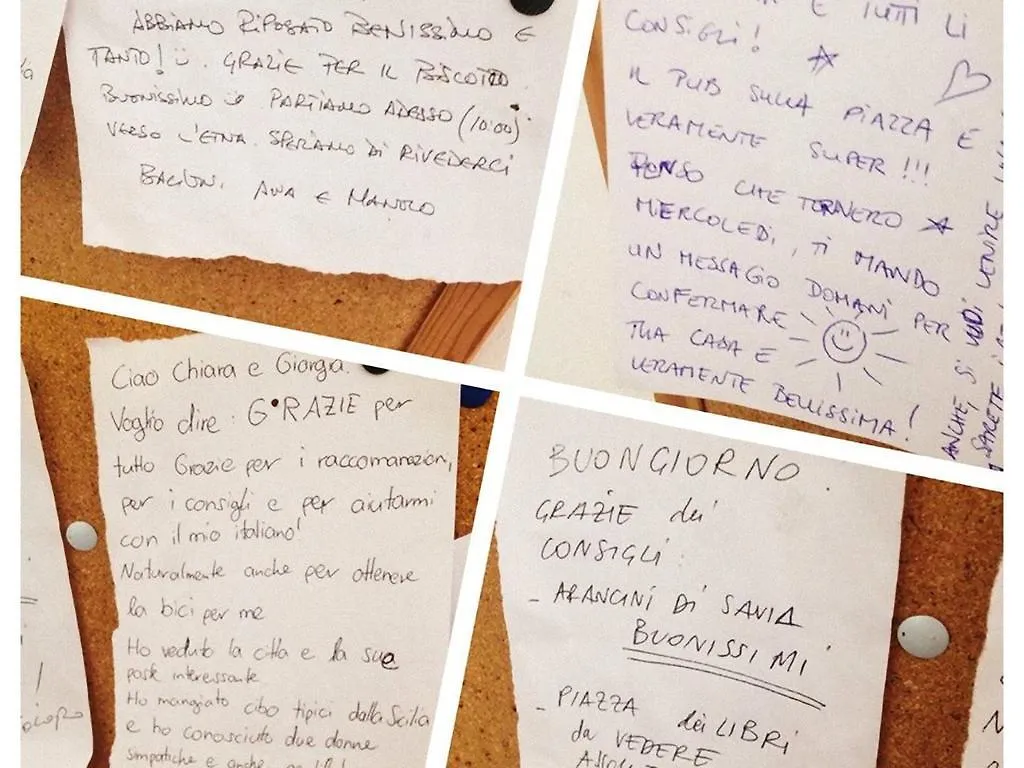 ABBIAMO RIPOSATO BENISSIMO E
TANTO! GRAZIE PER IL BISCOTTO
BUONISSIMO PARTIAMO ADESSO (10:00)
VERSO L'ETNA. SPERIAMO DI RIVEDERCI
BACIONI, ANA E MANOLO
E TUTTI LI
CONSIGLI!
IL PUB SULLA PIAZZA E
VERAMENTE SUPER!!!
PENSO CHE TORNERO
MIERCOLEDI, TI MANDO
UN MESSAGIO DOMANI PER
CONFERMARE
TUA CASA E
VERAMENTE BELLISSIMA!
ANCHE, SI VUOI VENIRE
SARETE
Ciao Chiara e Giorgia.
Voglio dire GRAZIE per
tutto Grazie per i raccomanazioni,
per i consigli e per aiutarmi
con il mio italiano!
Naturalmente anche per ottenere
la bici per me
Ho veduto la citta e la sue
poste interessante
Ho mangiato cibo tipici dalla Sicilia
e ho conosciuto due donne
simpatiche e anche
BUONGIORNO.
GRAZIE dei
CONSIGLI:
- ARANCINI DI SAVIA
BUONISSIMI
- PIAZZA dei LIBRI
da VEDERE